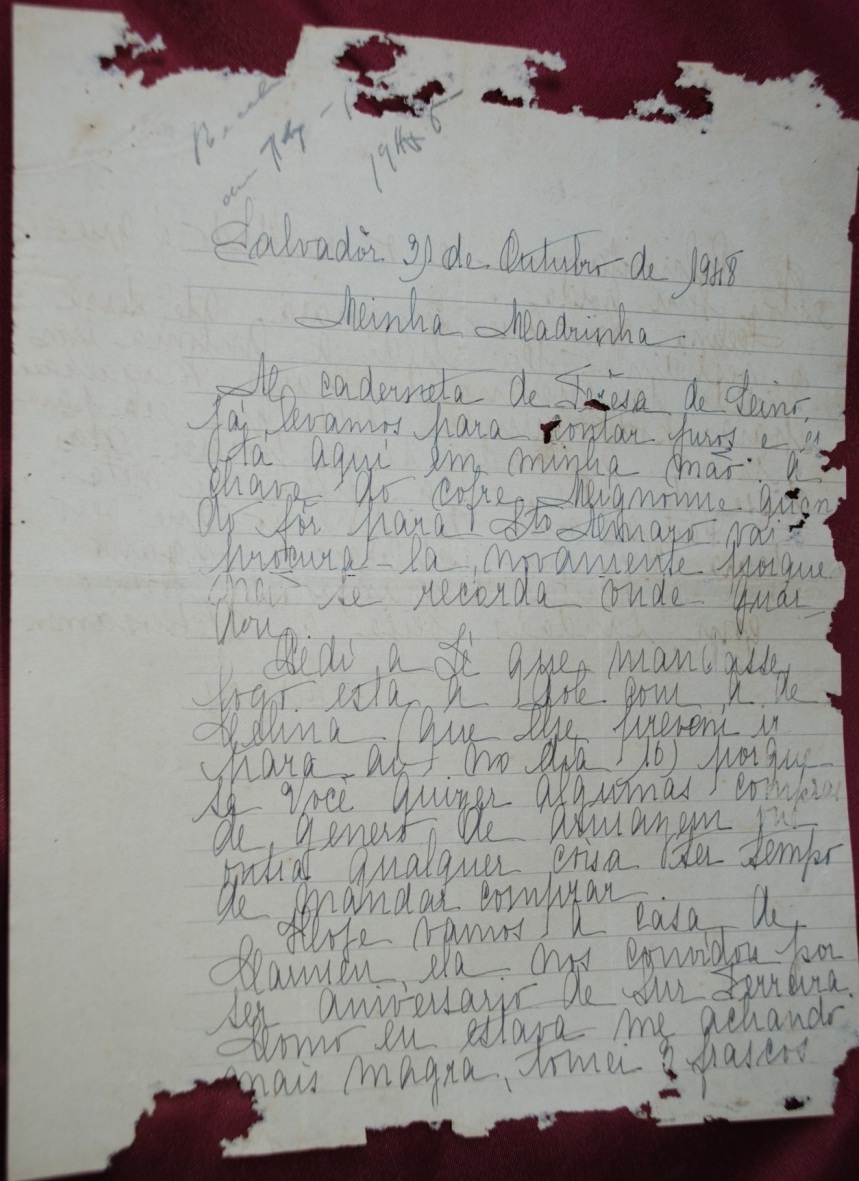 1948
Salvadôr 31 de Outubro de 1948
Minha Madrinha
A caderneta de Terêsa de
já levamos para contar juros e es
tá aqui em minha mão a
chave do cofre, Mignonne quan
do fôr para Sto Amaro vai
procura-la novamente porque
não se recorda onde guar
dou.
Pedi a Zé que mandasse
logo esta a Iole com a de
Celina (que lhe preveni ir
para aí no dia 16) porque
se Você quizer algumas compras
de genero de armazem ou
outra qualquer coisa ter tempo
de mandar comprar.
Hoje vamos a casa de
Carmen, ela nos convidou por
ser aniversario de Ferreira.
Como eu estava me achando
mais magra, tomei 3 frascos